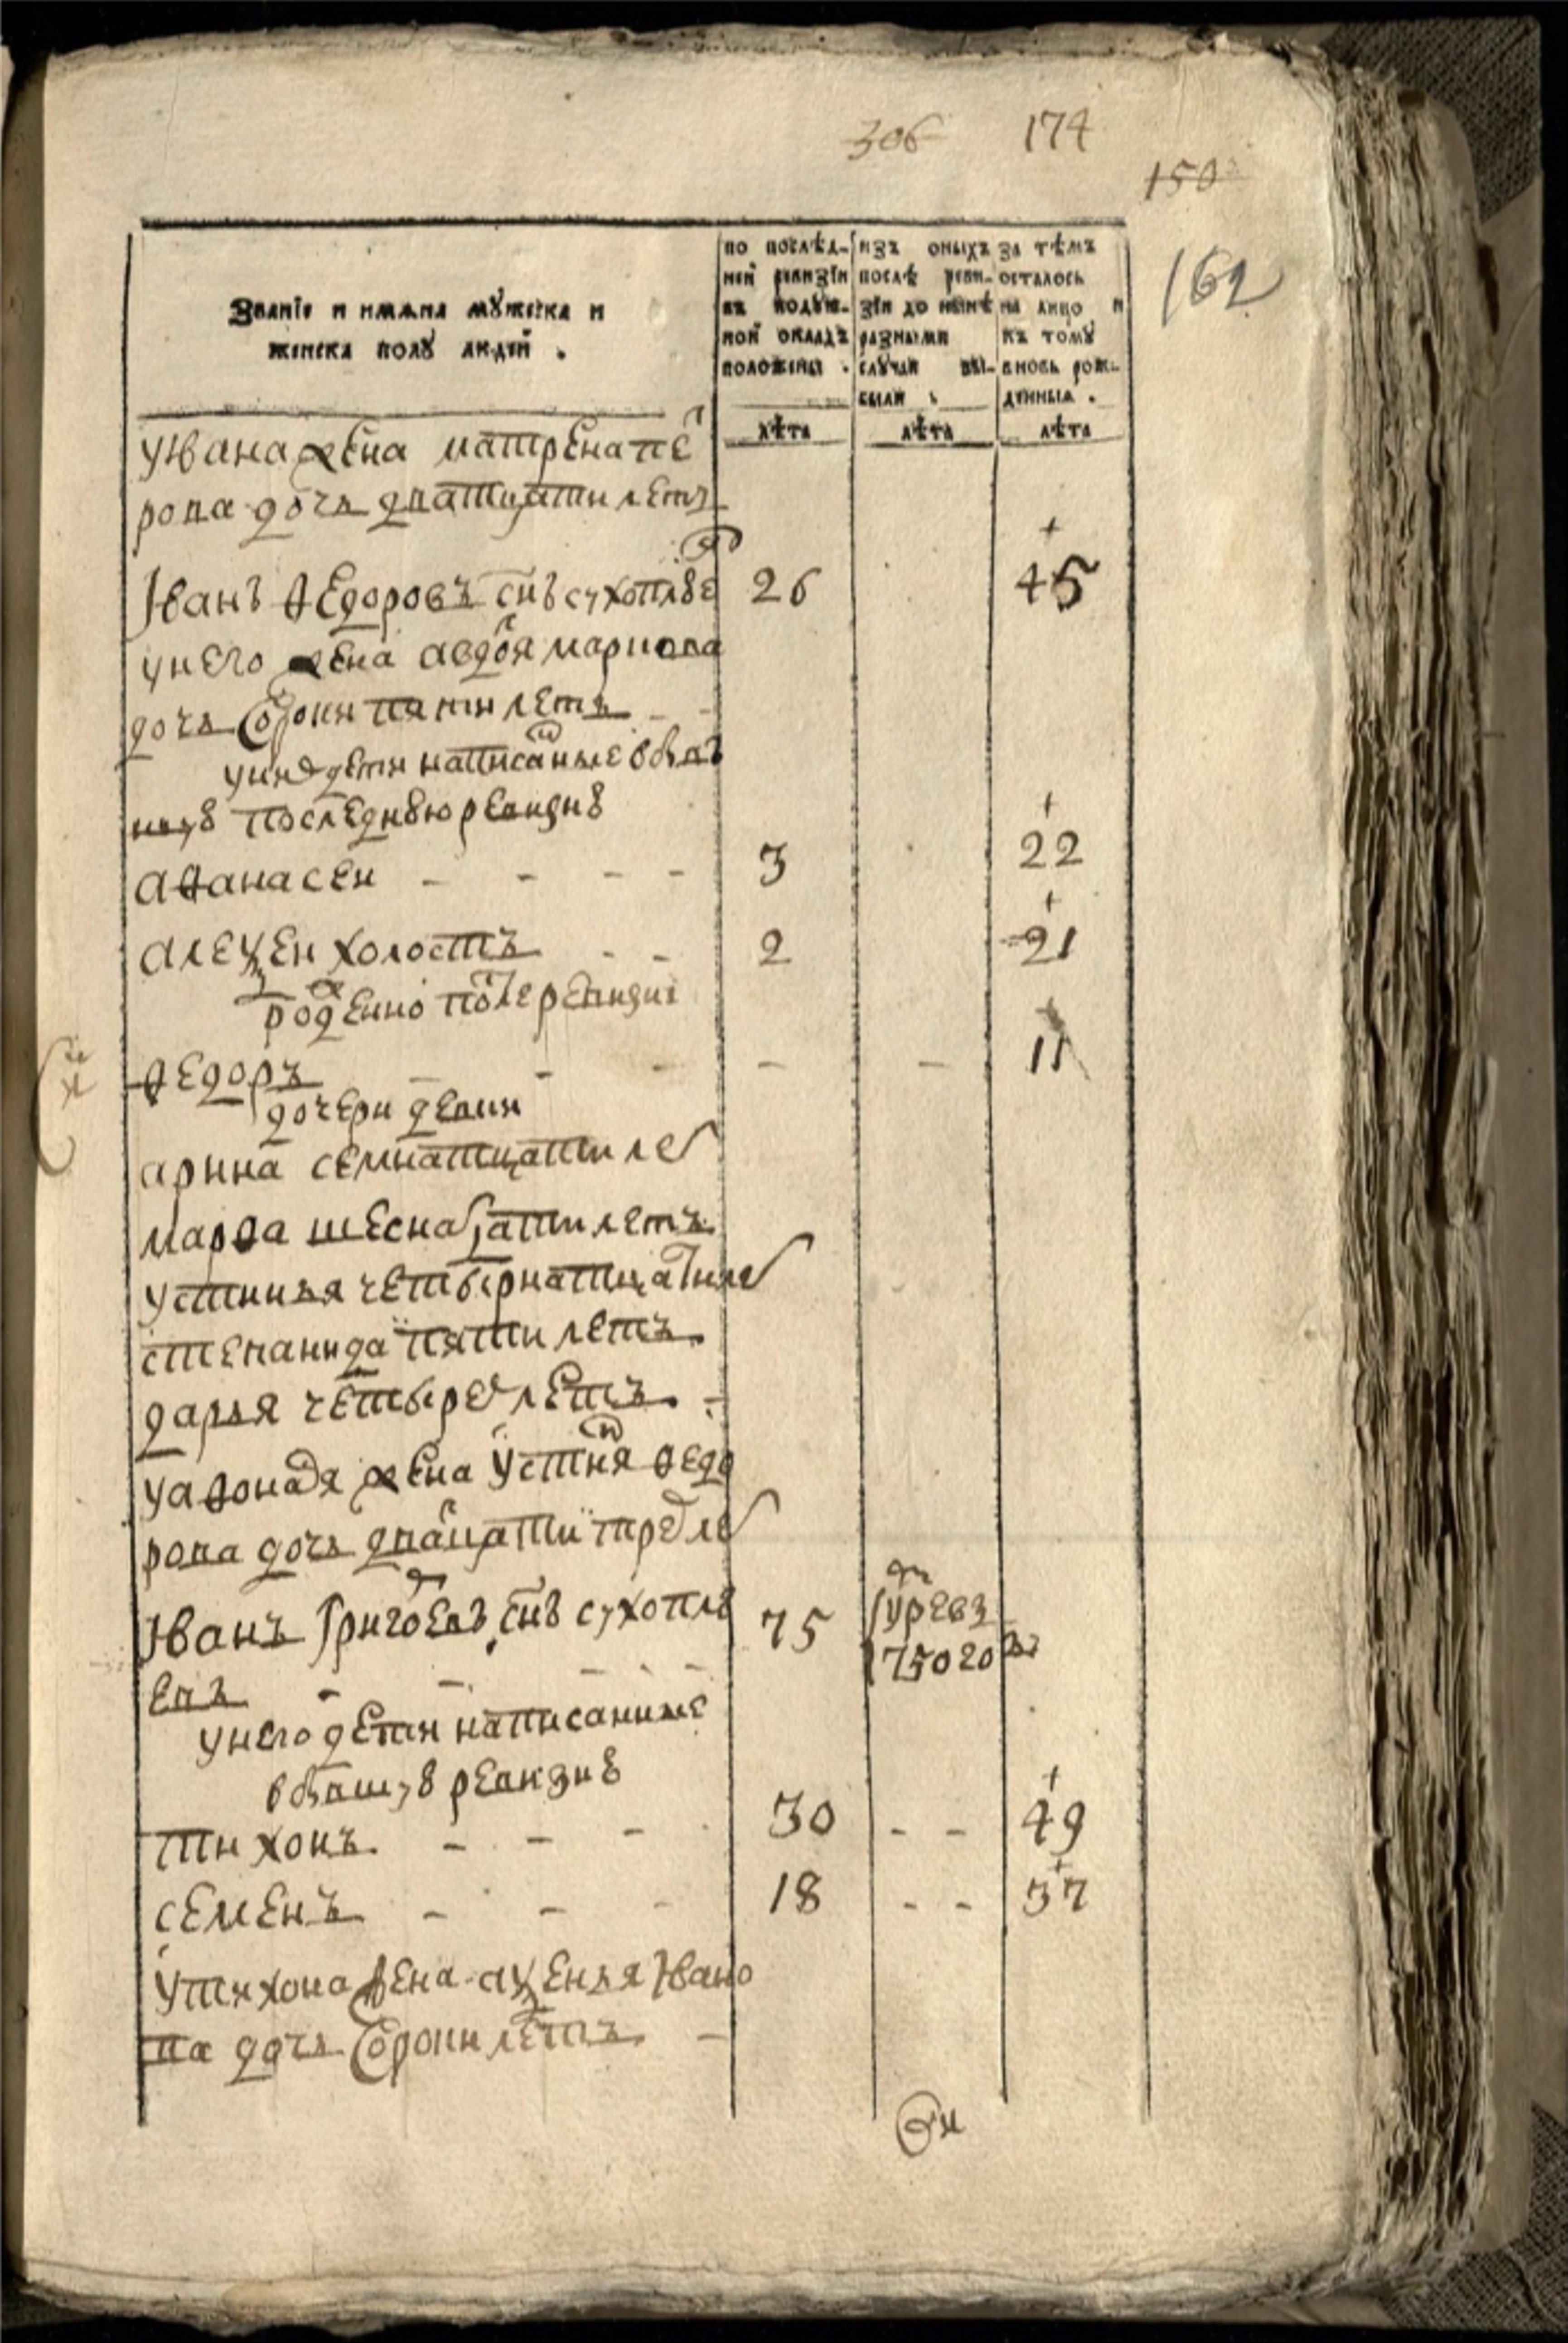 306 174
150
162
Званіе и имѧна мꙋжеска и
женска полꙋ людей .
по послѣд-
ней ревизіи
въ подꙋш-
ной окладъ
положены .
лѣта
изъ оныхъ
послѣ реви-
зіи до нынѣ
разными
слꙋчаи вы-
были .
лѣта
за тѣмъ
осталось
на лицо и
къ томꙋ
вновь рож-
денныя .
лѣта
у Ивана жена матрена пет
рова дочь дватцати летъ
Іванъ Ѳедоровъ снъ сухоплюе 26 45
у него жена авдотя
дочь сорока пяти летъ
у них дети написаные в быв
шую последнюю ревизию
аѳанасеи 3 22
алеѯеи холостъ 2 21
рожденно после ревизиі
Ѳедоръ 11
дочери девки
арина семнатцати ле
марѳа шеснатцати летъ
устинья четырнатцати лет
степанида пяти летъ
дарья четырех летъ
у аѳонася жена устиня Ѳедо
рова дочь двацати трех ле
Іванъ Григоевъ снъ сухоплю 75
евъ
у него дети написанные
в бывшую ревизию
тихонъ 30 49
семенъ 18 37
у тихона жена аѯенья Івано
ва дочь сорока летъ